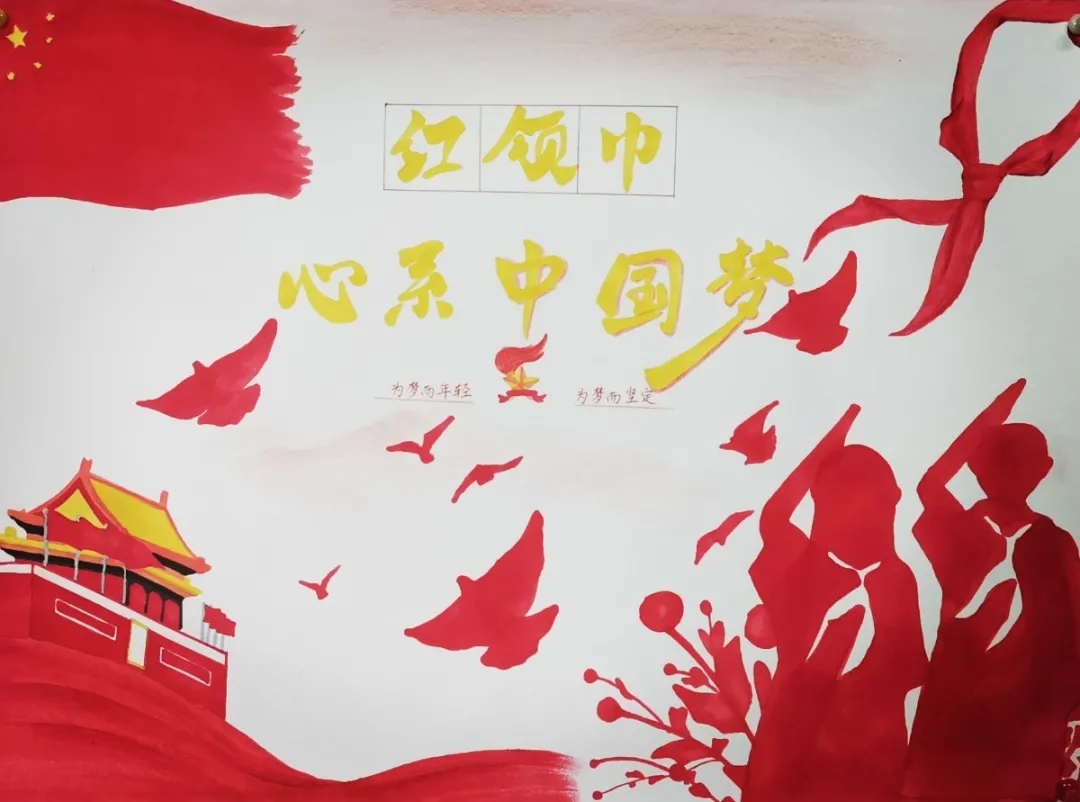 红领巾
心系中国梦
为梦而年轻
为梦而坚定